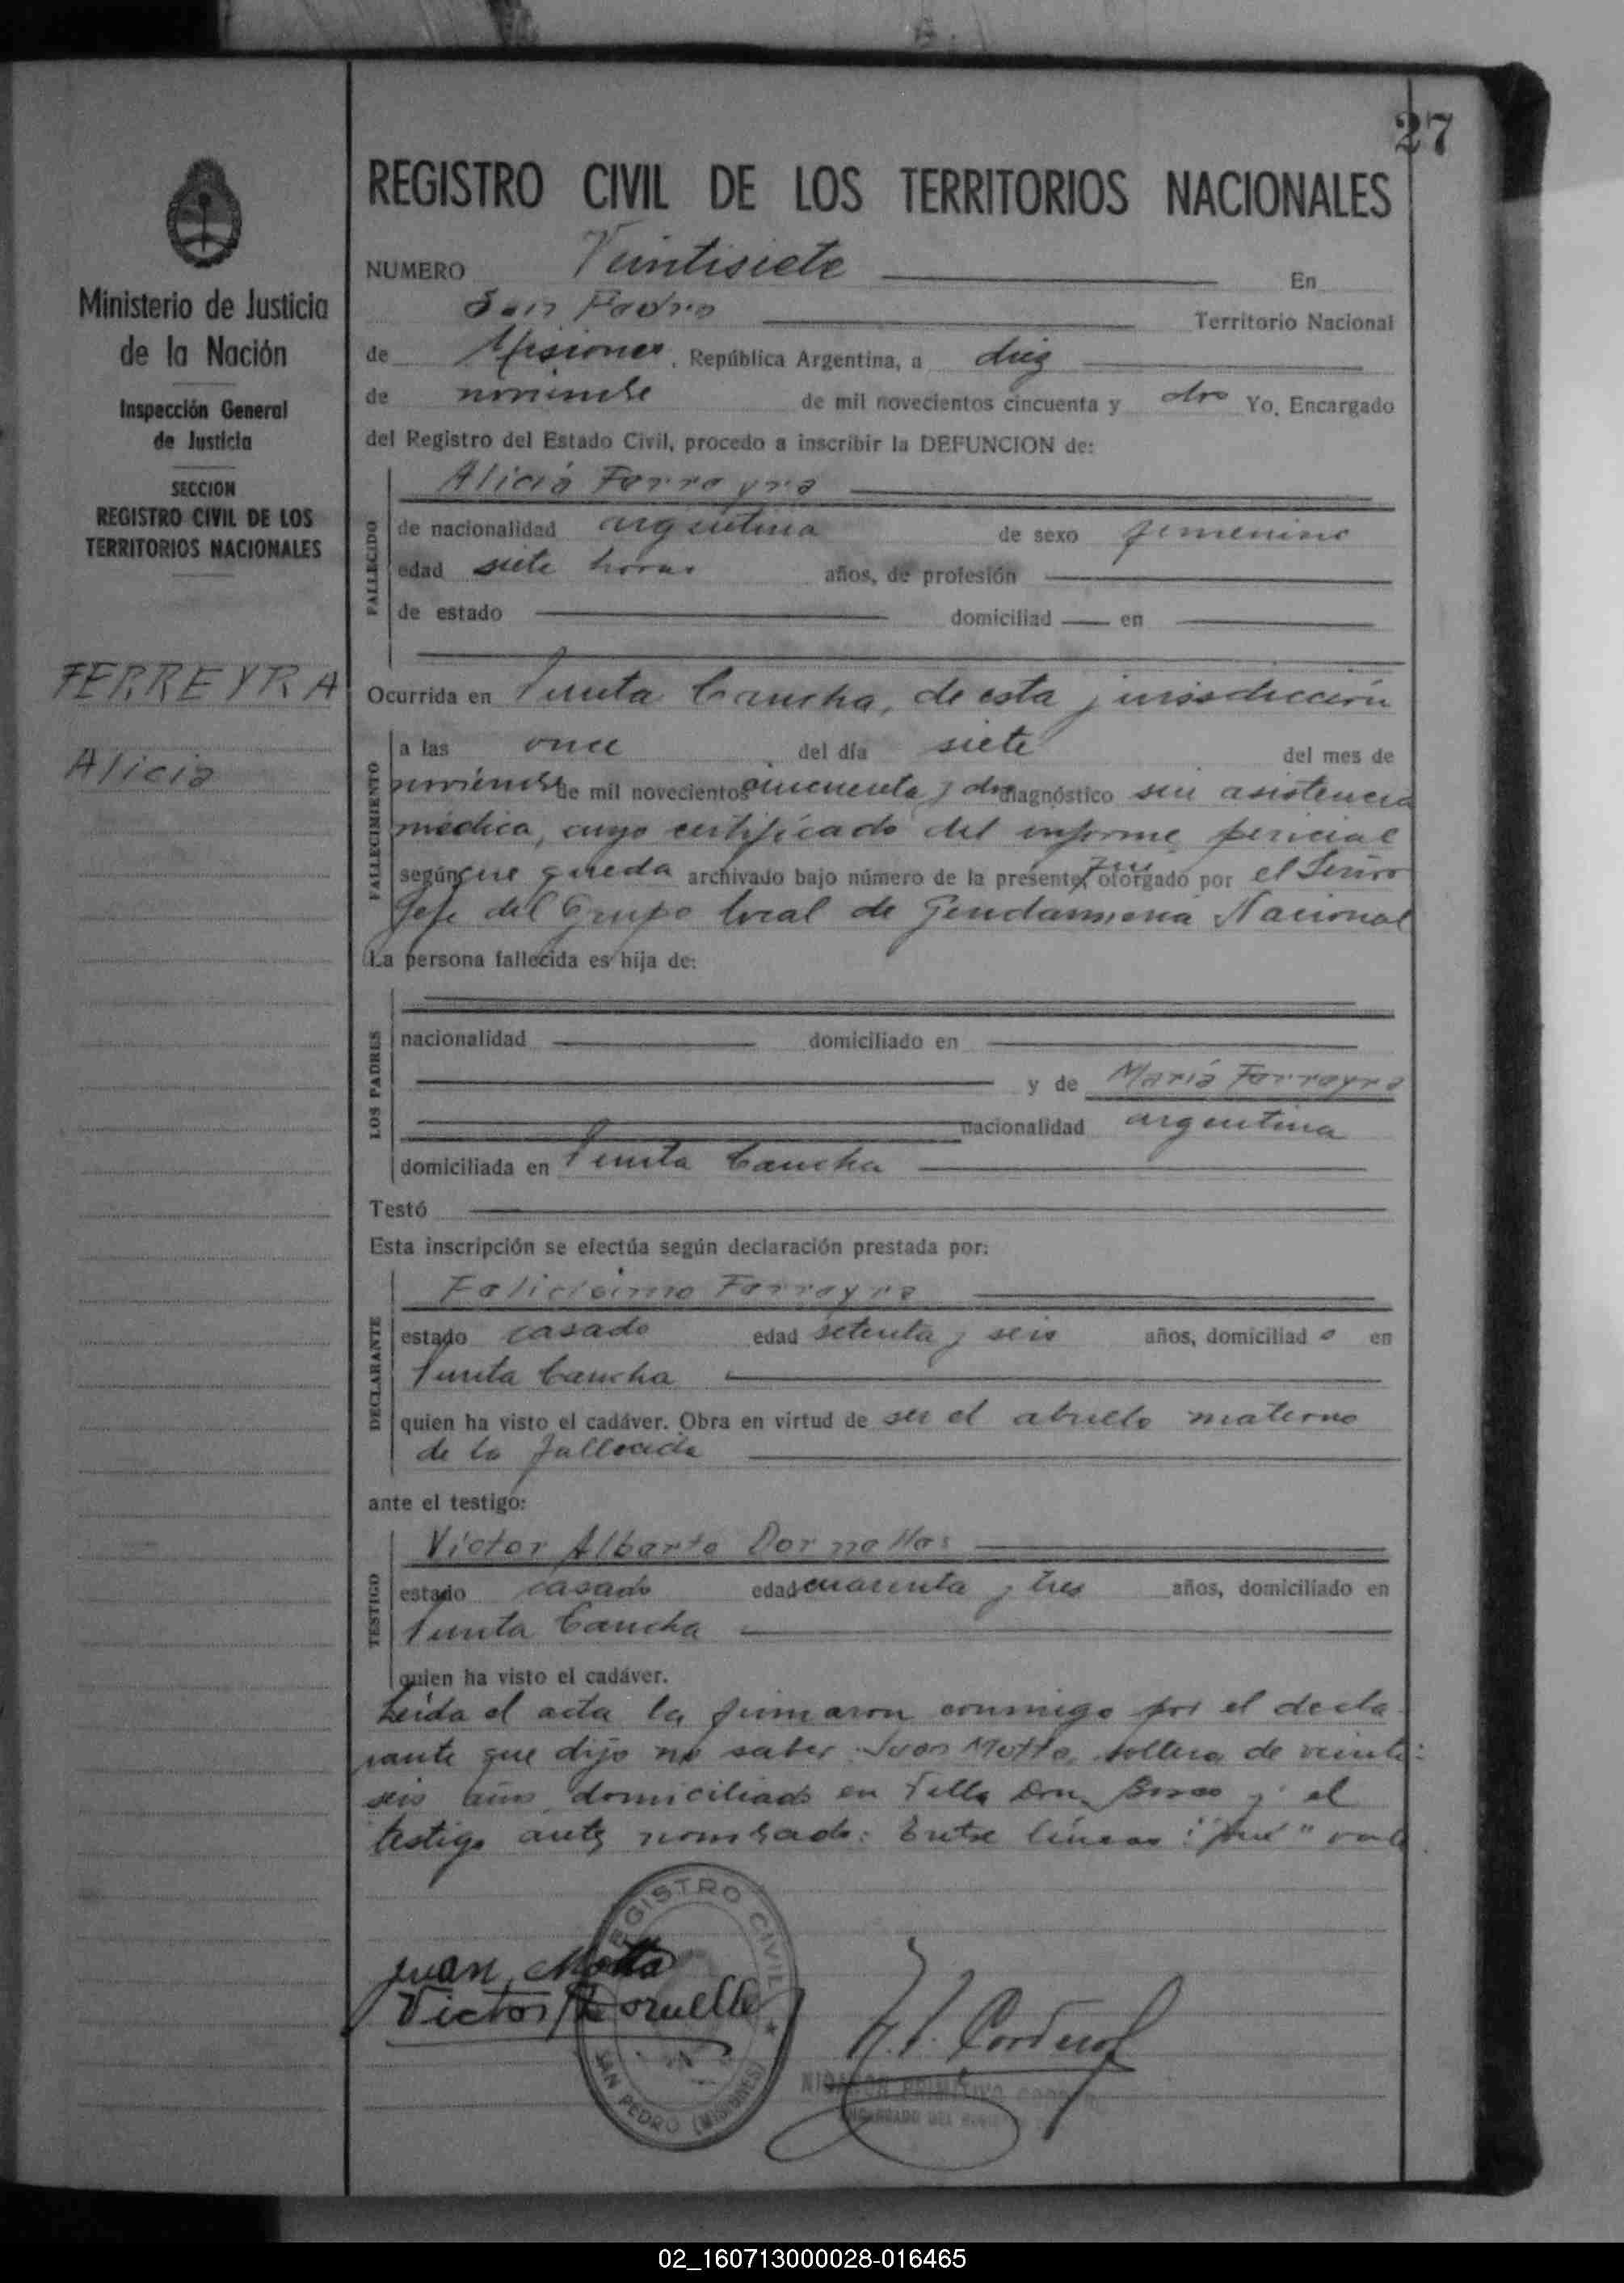 27
REGISTRO CIVIL DE LOS TERRITORIOS NACIONALES
Ministerio de Justicia
de la Nación
Inspección General
de Justicia
SECCION
REGISTRO CIVIL DE LOS
TERRITORIOS NACIONALES
FERREYRA
Alicia
NUMERO Veintisiete En
San Pedro Territorio Nacional
de Misiones, República Argentina, a diez
de noviembre de mil novecientos cincuenta y dos Yo, Encargado
del Registro del Estado Civil, procedo a inscribir la DEFUNCION de:
FALLECIDO
Alicia Ferreyra
de nacionalidad argentina de sexo femenino
edad siete horas años, de profesión
de estado domiciliad en
Ocurrida en Puerta Cancha, de esta jurisdicción
FALLECIMIENTO
a las once del día siete del mes de
noviembre de mil novecientos cincuenta y dos diagnóstico sin asistencia
médica, cuyo certificado del informe pericial
según que queda archivado bajo número de la presente, fue otorgado por el Señor
Jefe del Grupo local de Gendarmería Nacional
La persona fallecida es hija de:
LOS PADRES
nacionalidad domiciliado en
y de María Ferreyra
nacionalidad argentina
domiciliada en Punta Cancha
Testó
Esta inscripción se efectúa según declaración prestada por:
DECLARANTE
Felicísimo Ferreyra
estado casado edad setenta y seis años, domiciliado en
Punta Cancha
quien ha visto el cadáver. Obra en virtud de ser el abuelo materno
de la fallecida
ante el testigo:
TESTIGO
Víctor Alberto Dornelles
estado casado edad cuarenta y tres años, domiciliado en
Punta Cancha
quien ha visto el cadáver.
Leída el acta la firmaron conmigo por el decla
rante que dijo no saber Juan Motta, soltero de veinti
seis años domiciliado en Villa Don Bosco y el
testigo antes nombrado: Entre líneas: "fue" vale
Juan Motta
Victor Dornelle
REGISTRO CIVIL
SAN PEDRO (MISIONES)
N. P. Cordero
NICANOR PRIMITIVO CORDERO
ENCARGADO DEL
02_160713000028-016465